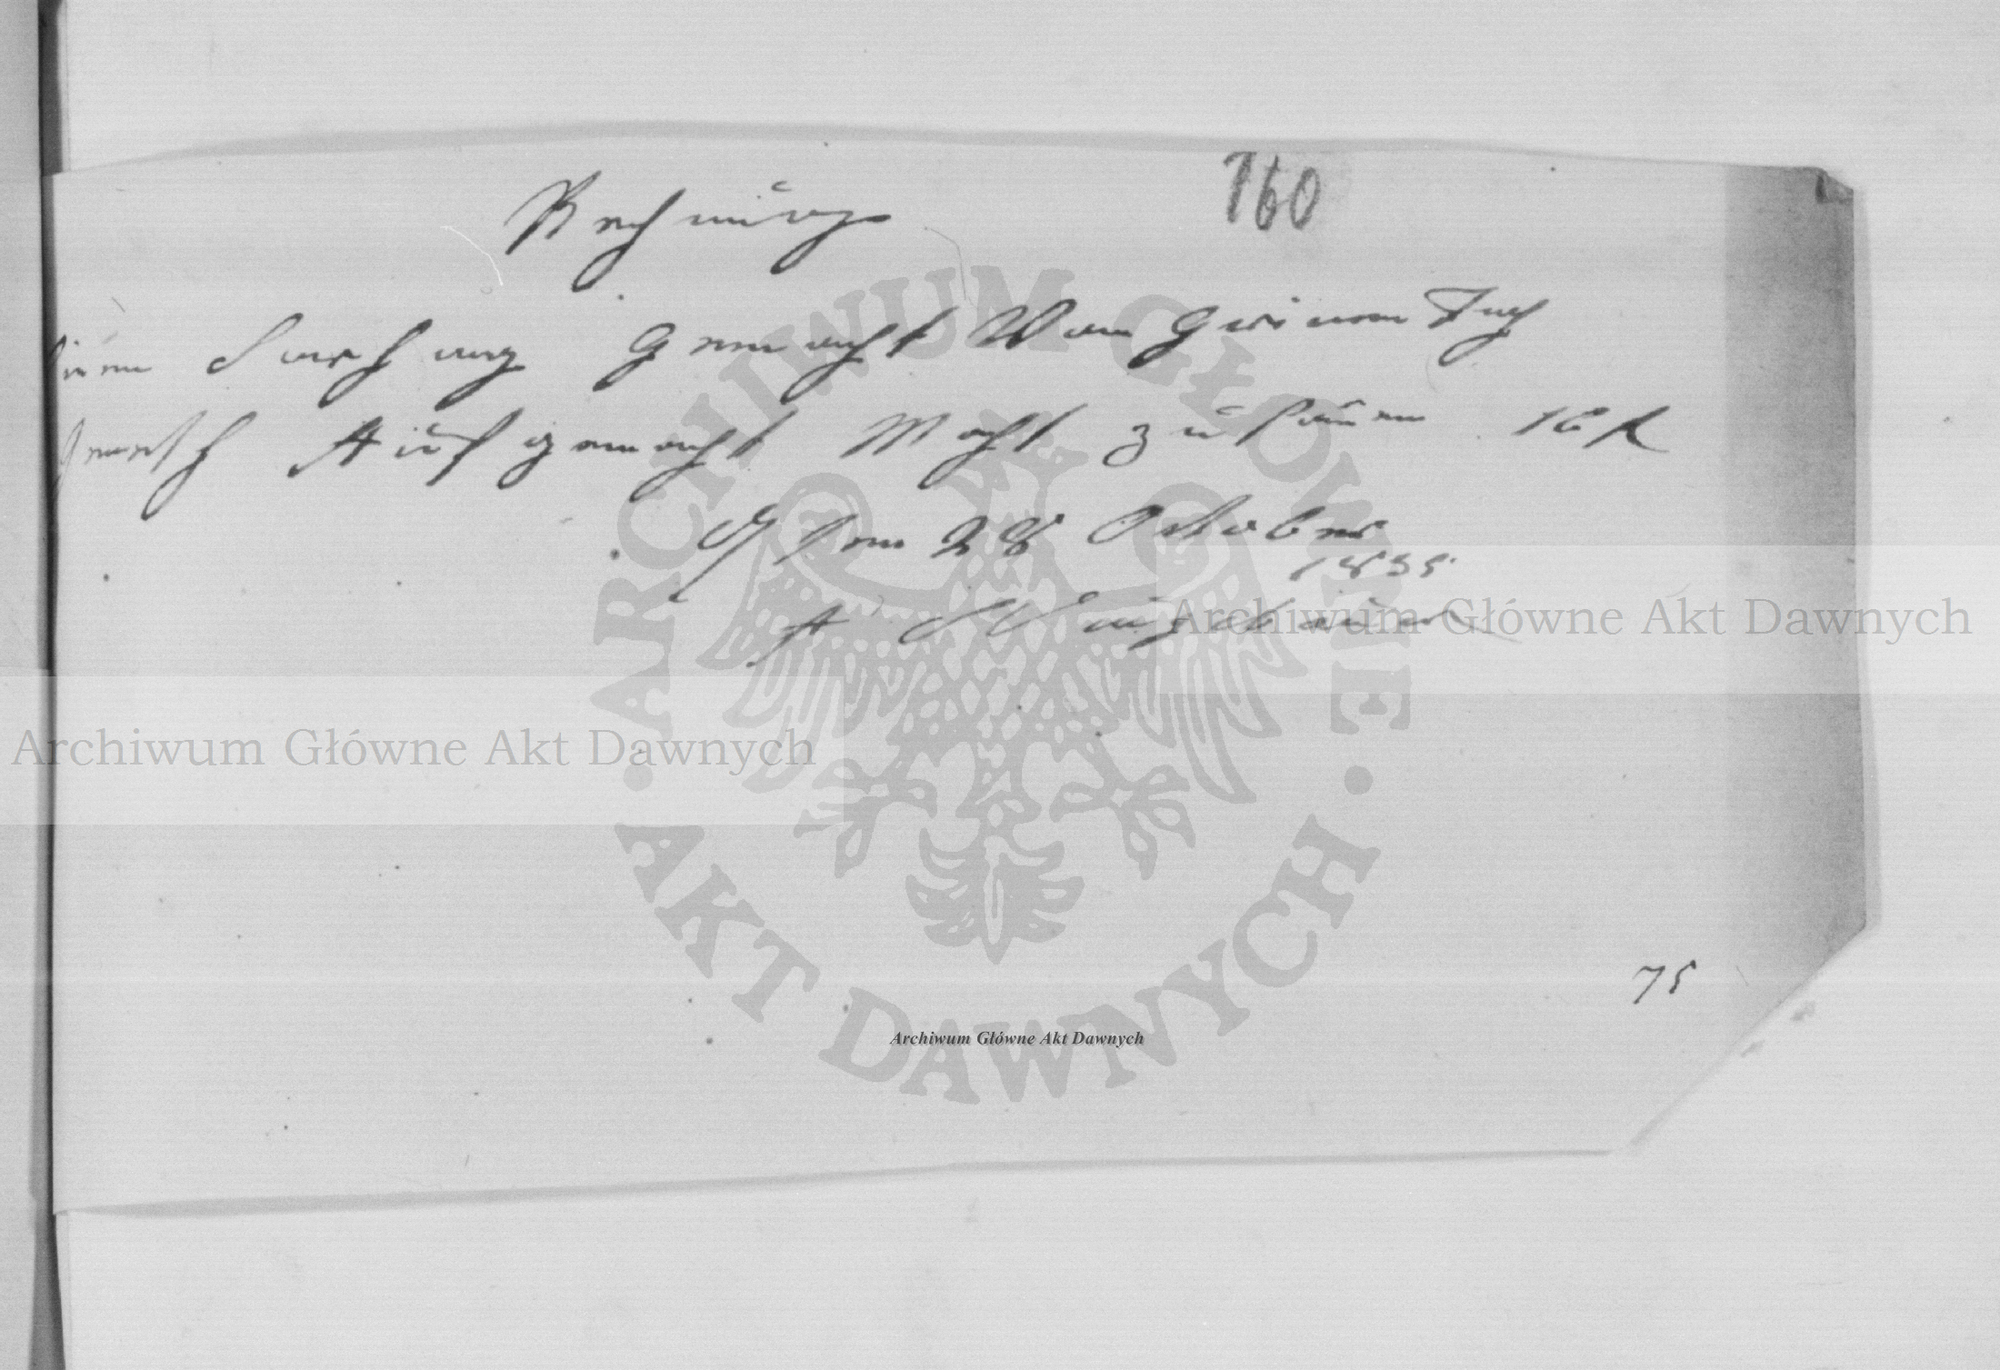 Rechnung
160
Vorhang gemacht Von Grinem Tuch
Aufgemacht Macht zusamen 16
den 28 October
1835
A
75
ARCHIWUM GŁÓWNE AKT DAWNYCH
Archiwum Główne Akt Dawnych
Archiwum Główne Akt Dawnych
Archiwum Główne Akt Dawnych